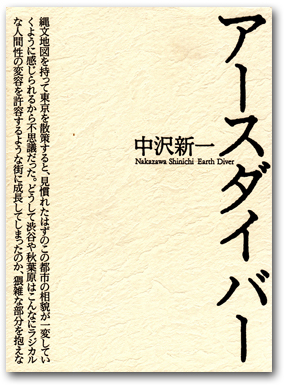 アースダイバー
中沢新一
Nakazawa Shinichi Earth Diver
縄文地図を持って東京を散策すると、見慣れたはずのこの都市の相貌が一変してい
くように感じられるから不思議だった。どうして渋谷や秋葉原はこんなにラジカル
な人間性の変容を許容するような街に成長してしまったのか、猥雑な部分を抱えな